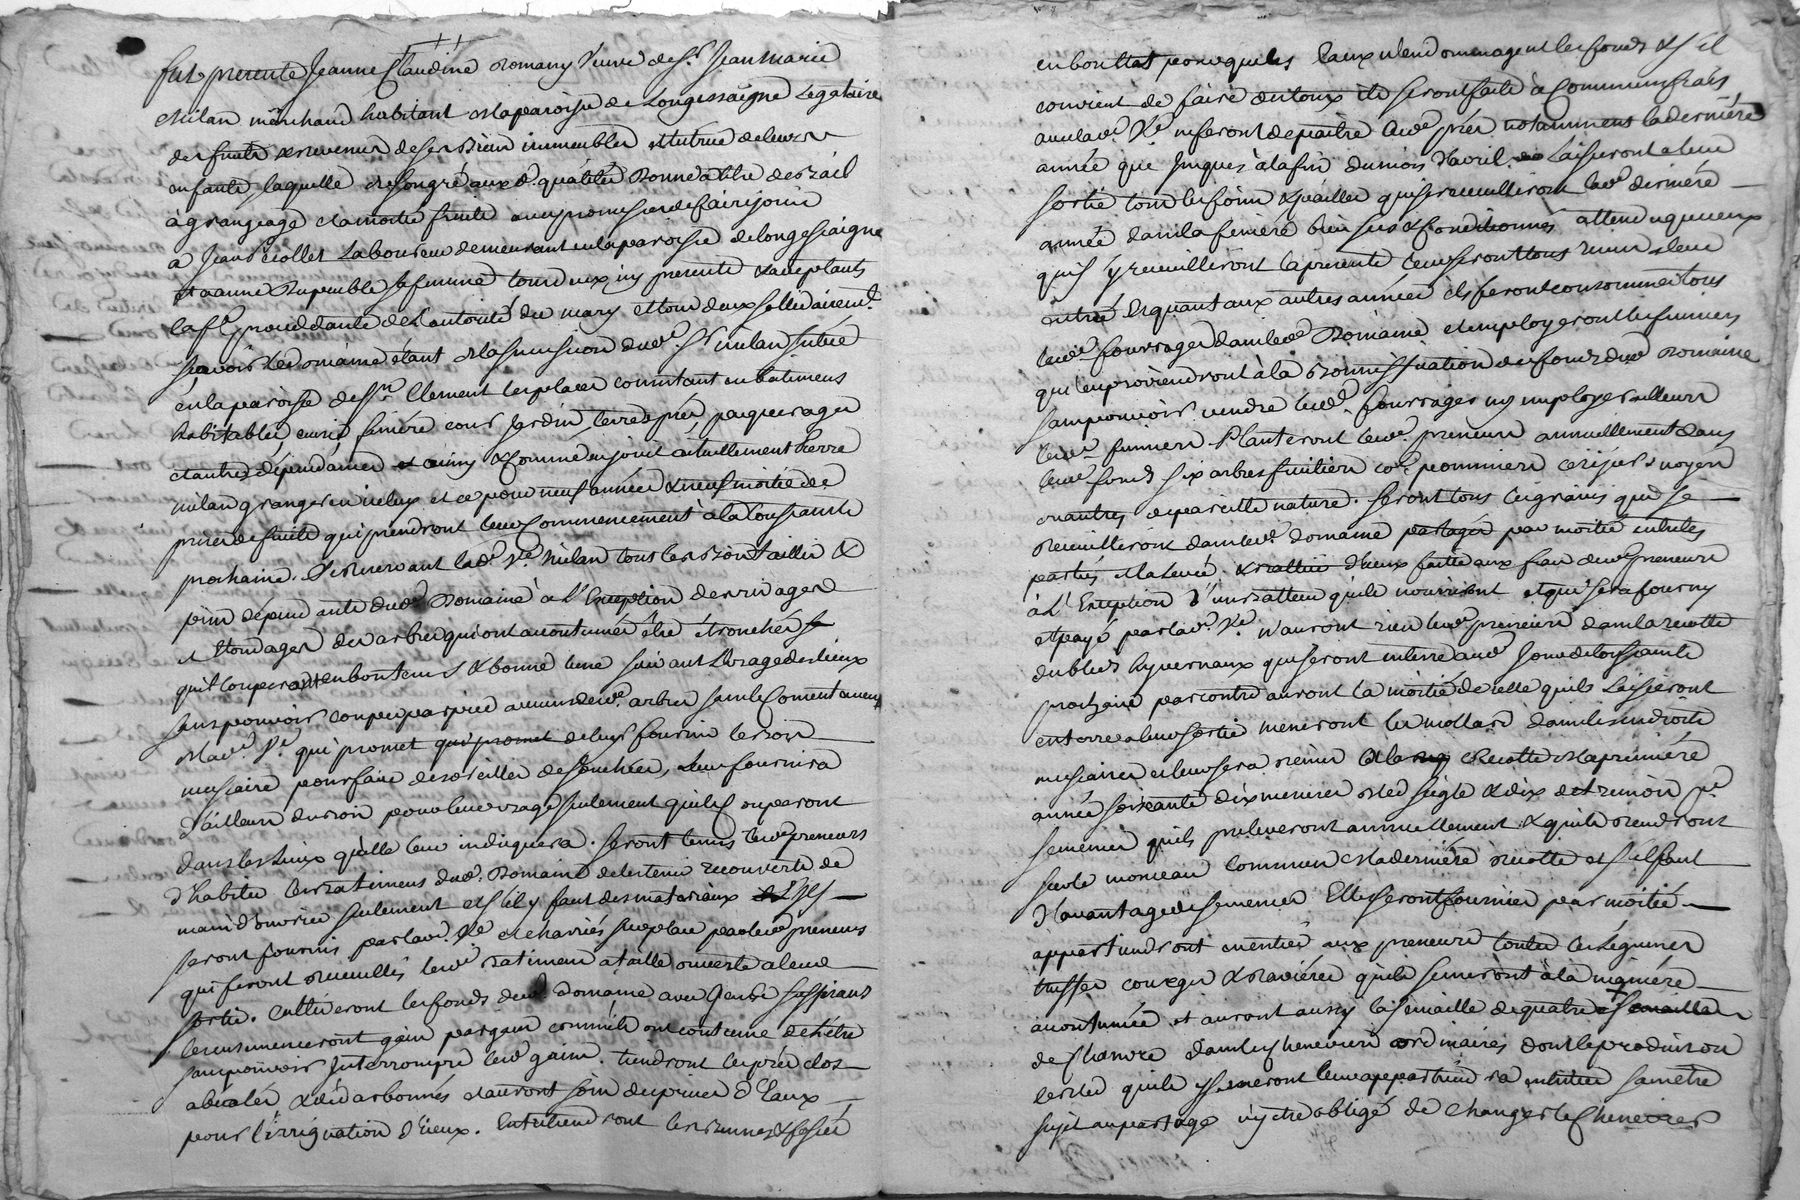 fut presente Jeanne Claudine Romany veuve de Sr Jean Marie
Milan marchand habitant la paroisse de Longessaigne Legataire
des fruits & revenus de ses biens immeubles et tutrice de leurs
enfants laquelle de son gré aux d. qualités donne a titre de bail
à grangeage & la moitié fruits avec promesse de faire jouir
a Jean Laboureur demeurant en la paroisse de longessaigne
et anne sa femme tous deux icy presents & acceptants
la fe procedante de l'autorité du mary et tous deux sollidairemt
scavoir le domaine étant de la succession dud. Sr milan situé
en la paroisse de St Clement les places consistant en batimens
habitables, curie feniere cour jardin, terres, prés, paquerages
et autres dépendances et ainsy & comme en jouit actuellement Pierre
milan granger en iceluy et ce pour neuf années & neuf moitié de
prises de fruits qui prendront leurs commencement à la toussaints
prochaine. Se reservant lad. Ve Milan tous les bois taillis &
pins dépendants dud. Domaine à l'Exception des
et tondages des arbres qui ont accoutumés être étronchés
qu'il couperont en bon tems & bonne lune suivant l'usage des lieux
sans pouvoir couper par pied aucuns desd. arbres sans le consentement
de lad. Ve qui promet qui promet de leur fournir le bois
necessaire pour faire des de, leur fournira
d'ailleurs du bois pour leur usage seulement qu'ils couperont
dans les lieux qu'elle leur indiquera. Seront tenus lesd. preneurs
d'habiter les batimens dud. Domaine de les tenir recouverts de
main d'ouvrier seulement et s'il y faut des materiaux ils
seront fournis par lad. Ve et charriés sur place par lesd. preneurs
qui seront recueillis lesd. batimens a taille ouverte a leur
sortie. Cultiveront les fonds dud. domaine avec Gens suffisans
les ensemenceront gain par gain comme ils ont coutume de l'être
sans pouvoir Interrompre lesd. gains. tiendront les prés clos
& auront soin des prises d'Eaux
pour l'irrigation d'iceux. Entretiendront les
en bon état pour que les Eaux n'endommagent les fonds & s'il
convient de faire des ils seront faits à Communs frais
avec lad. Ve ne feront depaître lesd. prés notamment la dernière
année que Jusques à la fin du mois d'avril. Laisseront a leur
sortie tous les foins & pailles qui se recueilliront lad. derniére
année dans la feniere bien & conditionnés attendu que ceux
qu'il y recueilliront la presente leurs seront tous remis a leur
entrée Et quant aux autres années ils feront consommer tous
lesd. fourrages dans led. Domaine et employeront les fumiers
qui en proviendront à la bonniffication des fonds dud. Domaine
sans pouvoir vendre lesd. fourrages ny employer ailleurs
lesd. fumiers. Planteront lesd. preneurs annuellement dans
lesd. fonds six arbres fruitiers come pommiers cerisiers noyers
ou autres de pareille nature. Seront tous les grains qui se
recueilliront dans led. domaine partagés par moitié entre les
parties, la levée & battue d'iceux faitte aux frais desd. preneurs
à l'Exception d'un batteur qu'ils nourriront et qui sera fourny
et payé par lad. Ve. N'auront rien lesd. preneurs dans la recolte
des bleds hyvernaux qui seront en terre aud. Jour de toussaints
prochains par contre auront la moitié de celle qu'ils laisseront
en terre a leur sortie meneront les mollard dans les endroits
necessaires et leur sera remis a la Recolte de la premiere
année soixante dix mesures bled seigle & dix de tremois pr
semences qu'ils préleveront annuellement & qu'ils rendront
sur le monceau commun de la derniére recolte et s'il faut
d'avantage de semences Elles seront fournies par moitié
appartiendront en entier aux preneurs toutes les légumes
truffes courges & raviéres qu'ils semeront à la maniére
accoutumée et auront aussy la semaille de quatre
de chanvre dans les cheneviers ordinaires dont le produit ou
les bled qu'ils y semeront leur appartiendra en entier sans être
sujet au partage n'y être obligé de changer les cheneviers